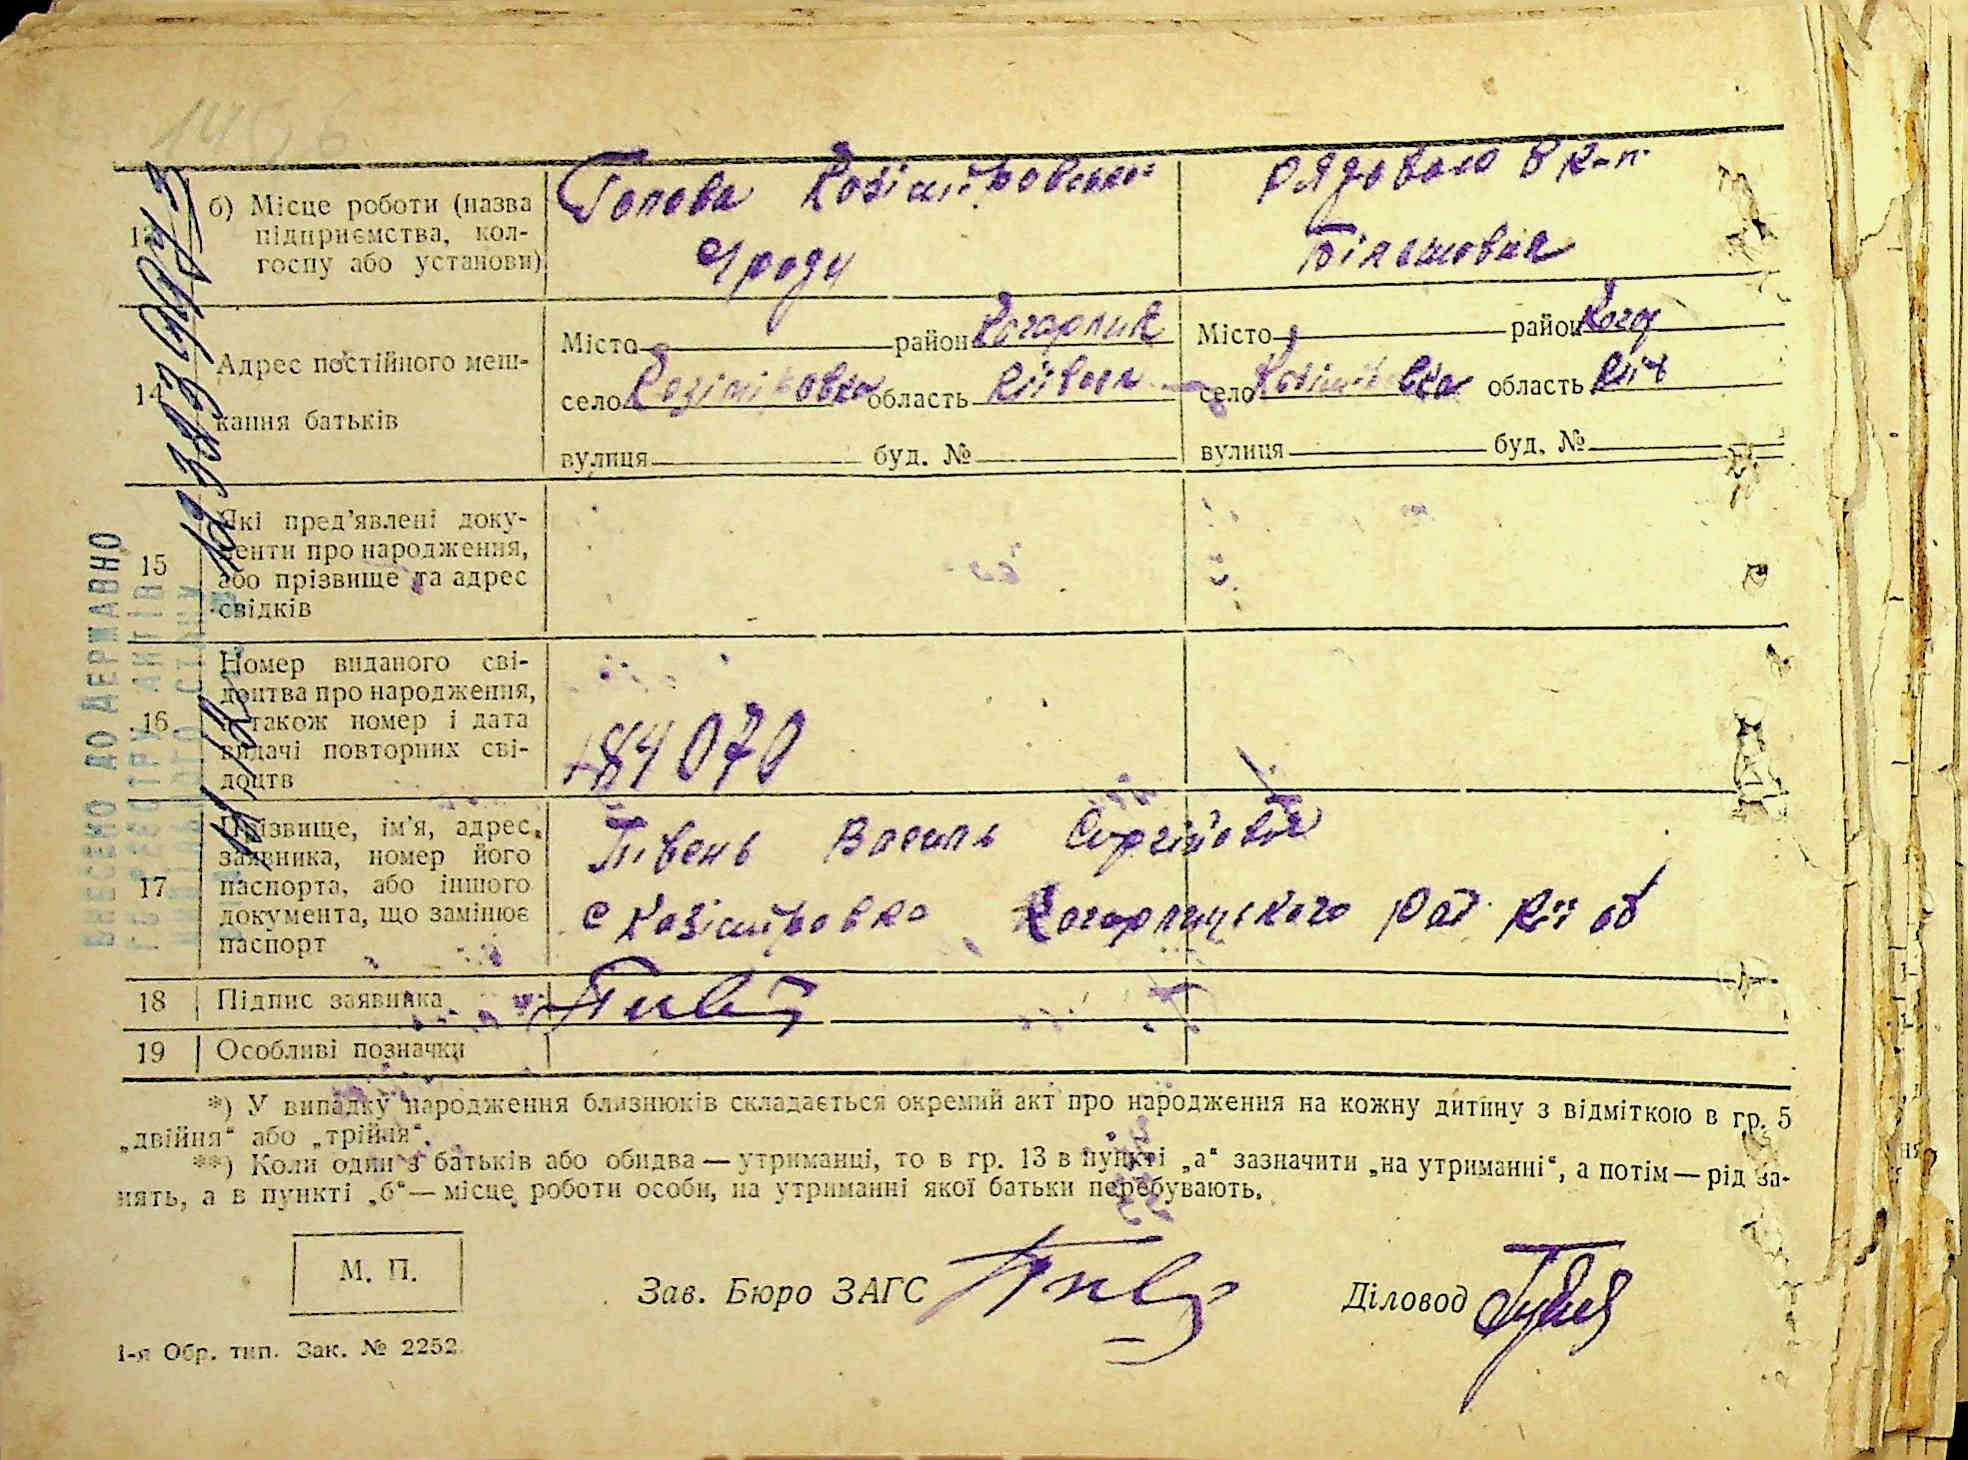 13 б) Місце роботи (назва підприємства, колгоспу або установи)
Голова Козіміровської
Сради
рядовою в к-п.
Більшовик
14 Адрес постійного мешкання батьків
Місто район Кагарлик
село Козіміровка область Київськ
вулиця буд. №
Місто район Кагар
село Козіміровка область Київ
вулиця буд. №
15 Які пред'явлені документи про народження, або прізвище та адрес свідків
16 Номер виданого свідоцтва про народження, а також номер і дата видачі повторних свідоцтв
184070
17 Прізвище, ім'я, адрес, заявника, номер його паспорта, або іншого документа, що замінює паспорт
Півень Василь Сергійович
с Козіміровка Кагарлицького рай. Киї об
18 Підпис заявника
19 Особливі позначки
*) У випадку народження близнюків складається окремий акт про народження на кожну дитину з відміткою в гр. 5
„двійня“ або „трійня“.
**) Коли один з батьків або обидва — утриманці, то в гр. 13 в пункті „а“ зазначити „на утриманні“, а потім — рід за-
нять, а в пункті „б“ — місце роботи особи, на утриманні якої батьки перебувають.
М. П.
Зав. Бюро ЗАГС
Діловод
1-я Обр. тип. Зак. № 2252
ВНЕСЕНО ДО ДЕРЖАВНО